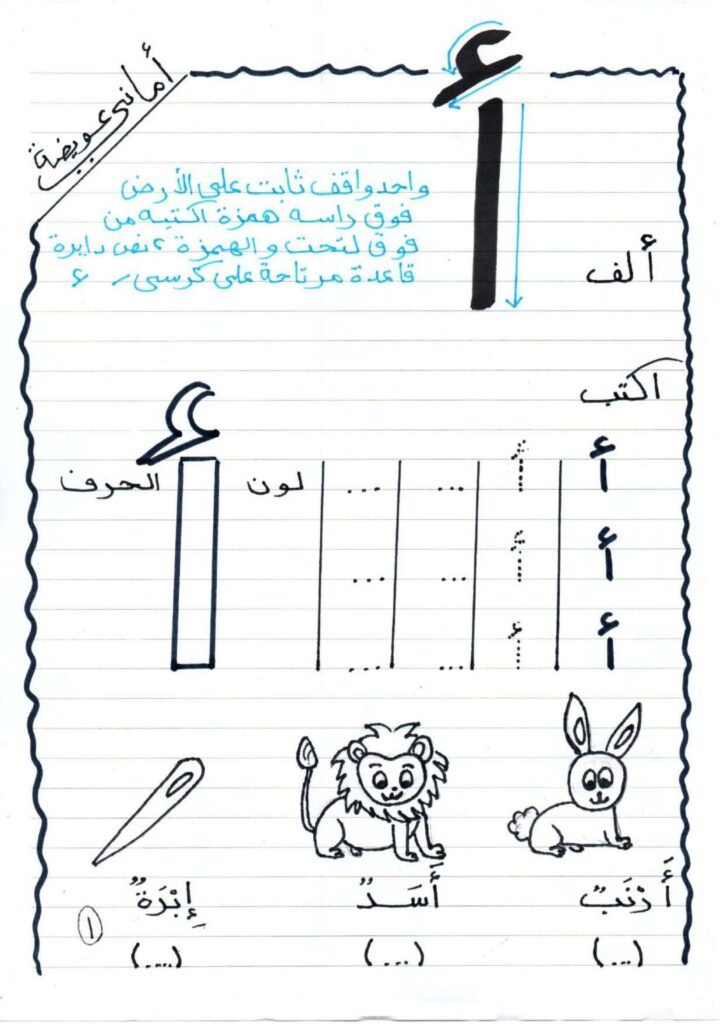 أماني عويضة
أ
واحد واقف ثابت على الأرض
فوق راسه همزة اكتبه من
فوق لتحت و الهمزة ء نص دايرة
قاعدة مرتاحة على كرسي / ء
ألف
اكتب
أ أ ... ... لون الحرف أ
أ أ ... ...
أ أ ... ...
أَرْنَبٌ أَسَدٌ إِبْرَةٌ
(...) (...) (....)
١